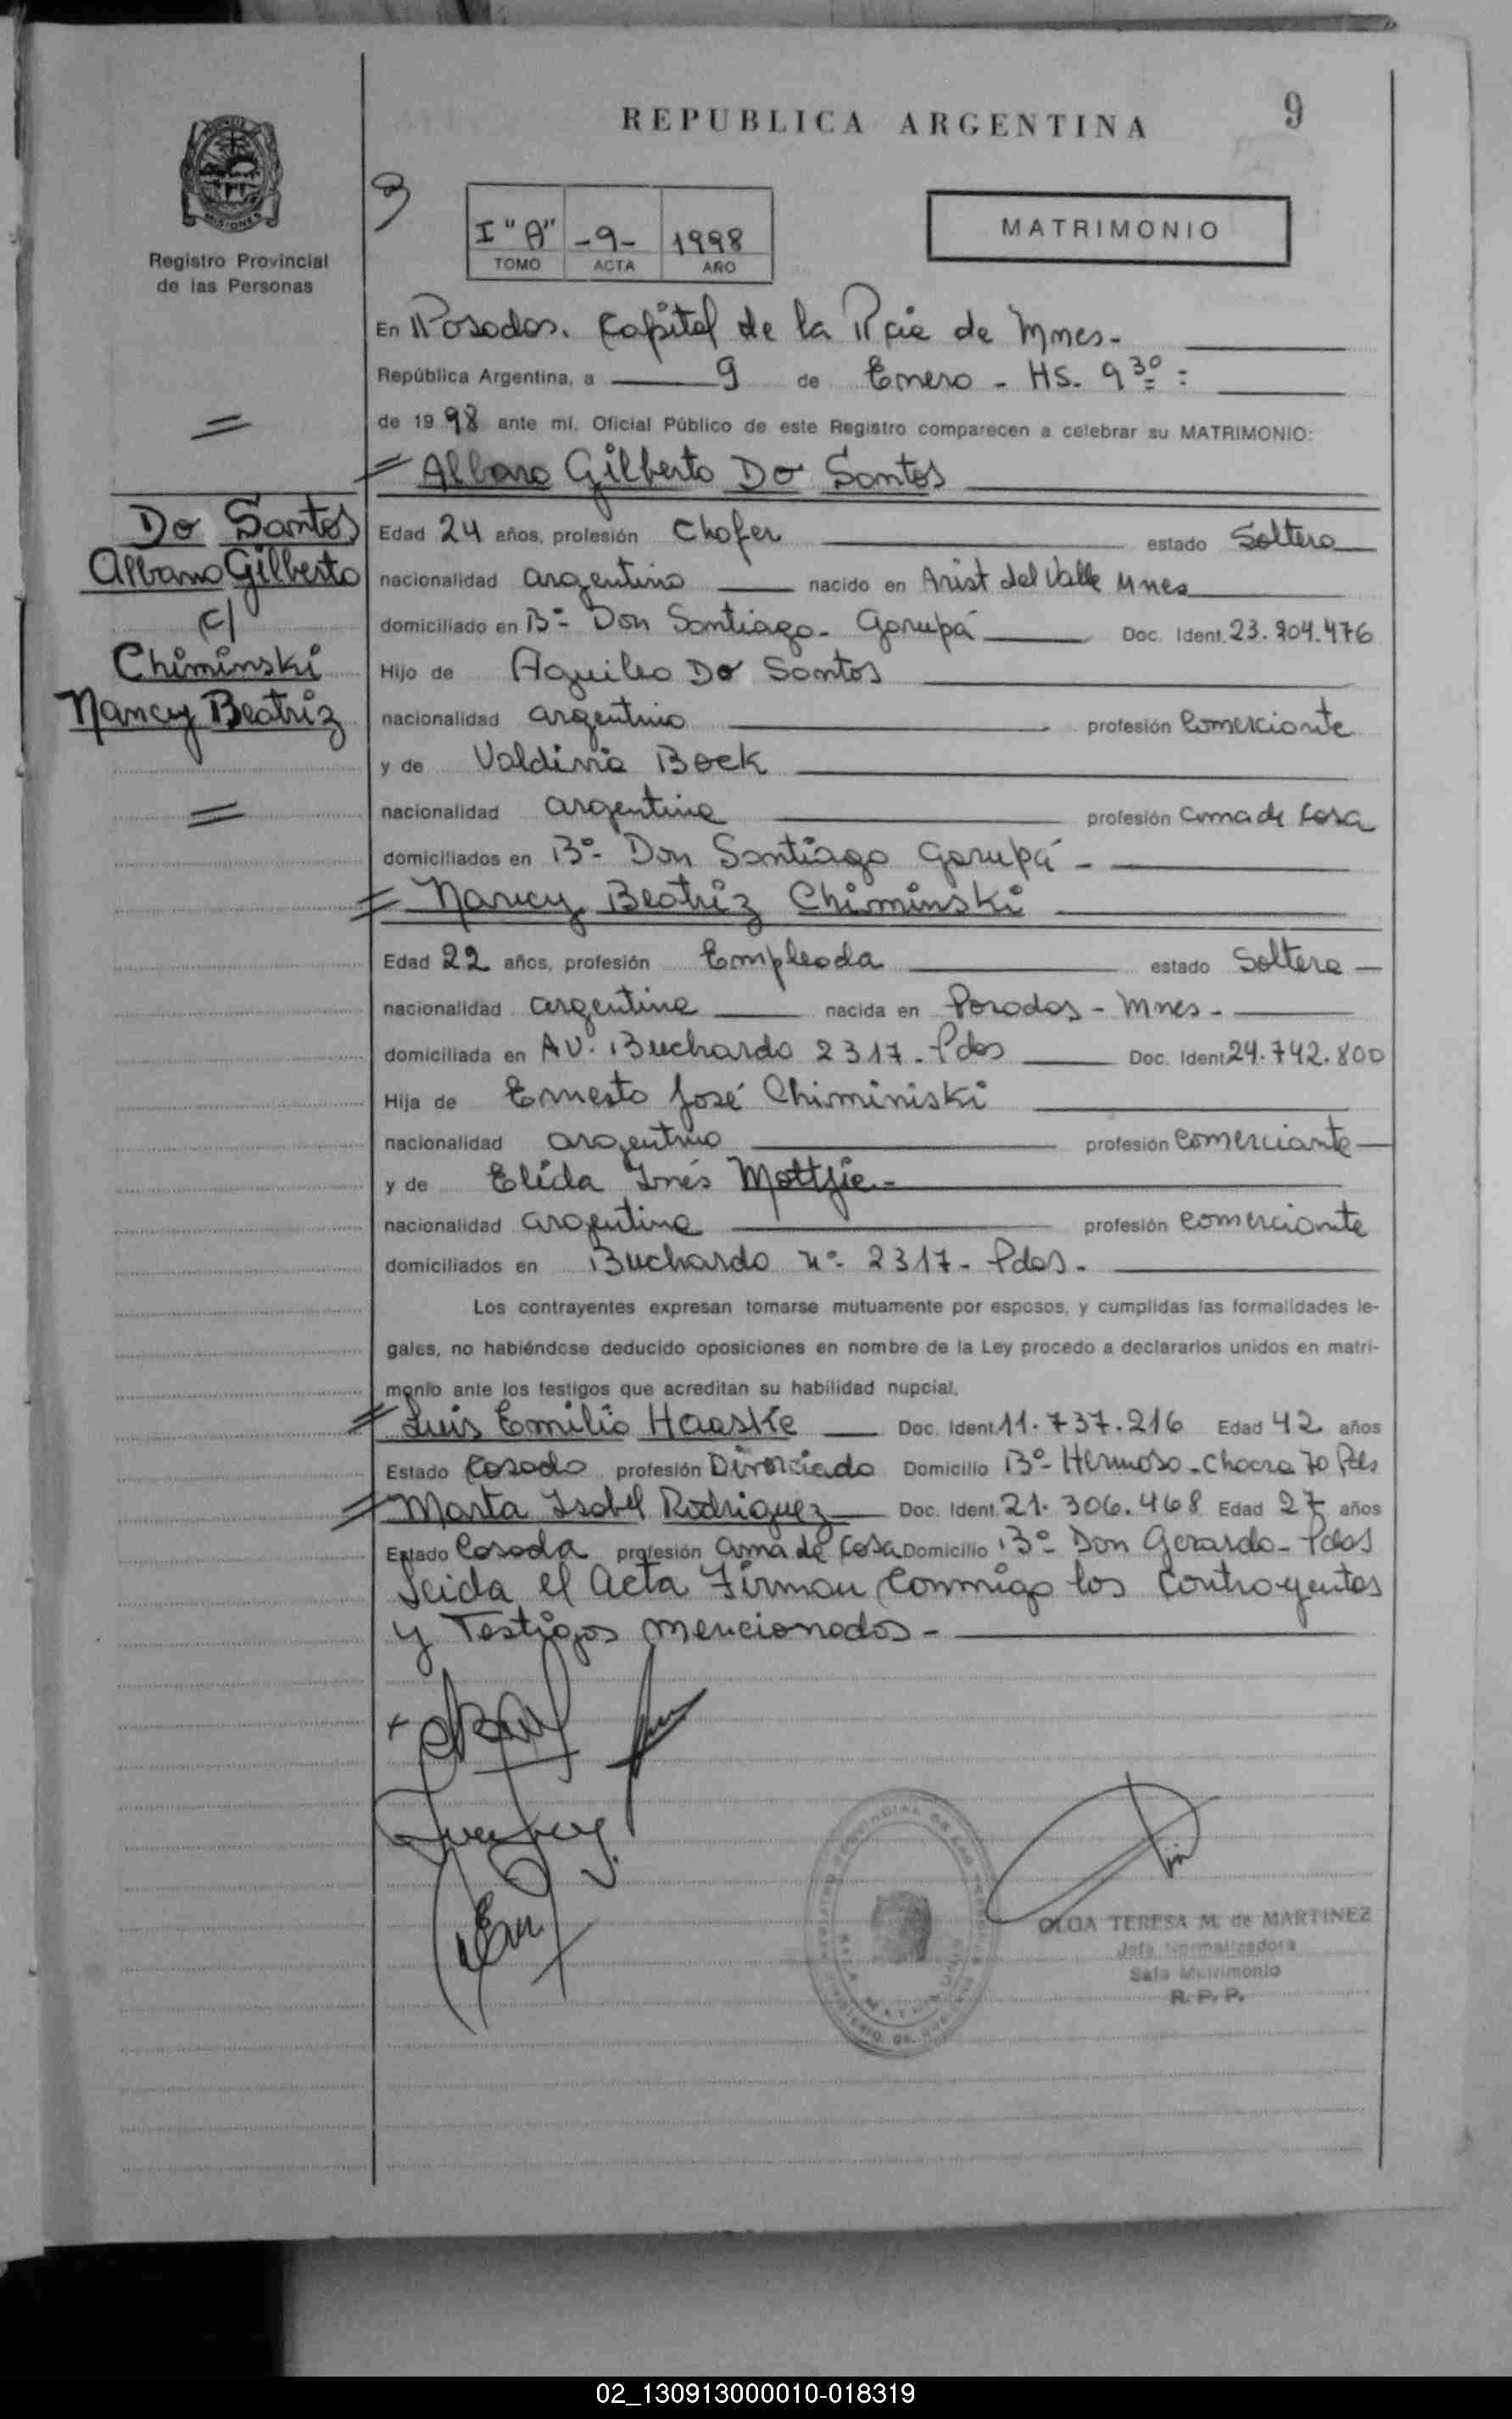 REPUBLICA ARGENTINA
9
MISIONES
Registro Provincial
de las Personas
3
I "A" -9- 1998
TOMO ACTA AÑO
MATRIMONIO
En Posadas. Capital de la Pcia de Mnes-
República Argentina, a 9 de Enero - HS. 9 30 =
de 19 98 ante mí, Oficial Público de este Registro comparecen a celebrar su MATRIMONIO:
Albano Gilberto Do Santos
Do Santos
Albano Gilberto
c/
Chiminski
Nancy Beatriz
Edad 24 años, profesión Chofer estado Soltero
nacionalidad argentino nacido en Arist del Valle Mnes
domiciliado en Bº- Don Santiago- Garupá Doc. Ident. 23.904.476
Hijo de Aquileo Do Santos
nacionalidad argentino profesión Comerciante
y de Valdivia Boek
nacionalidad argentina profesión ama de casa
domiciliados en Bº- Don Santiago Garupá -
Nancy Beatriz Chiminski
Edad 22 años, profesión Empleada estado Soltera
nacionalidad argentina nacida en Posadas - Mnes -
domiciliada en AV. Buchardo 2317- Pdas Doc. Ident 24.742.800
Hija de Ernesto José Chiminiski
nacionalidad argentino profesión comerciante
y de Elida Inés Mottjie-
nacionalidad argentina profesión comerciante
domiciliados en Buchardo nº- 2317- Pdas-
Los contrayentes expresan tomarse mutuamente por esposos, y cumplidas las formalidades le-
gales, no habiéndose deducido oposiciones en nombre de la Ley procedo a declararlos unidos en matri-
monio ante los testigos que acreditan su habilidad nupcial.
Luis Emilio Haaske Doc. Ident 11.737.216 Edad 42 años
Estado Casado profesión Divorciado Domicilio Bº- Hermoso-Chacra 70 Pdas
Marta Isabel Rodriguez Doc. Ident. 21.306.468 Edad 27 años
Estado Casada profesión ama de casa Domicilio Bº- Don Gerardo- Pdas
Leida el Acta Firman Conmigo los Contrayentes
y Testigos mencionados -
OLGA TERESA M. de MARTINEZ
Jefa Normalizadora
Sala Matrimonio
R. P. P.
02_130913000010-018319